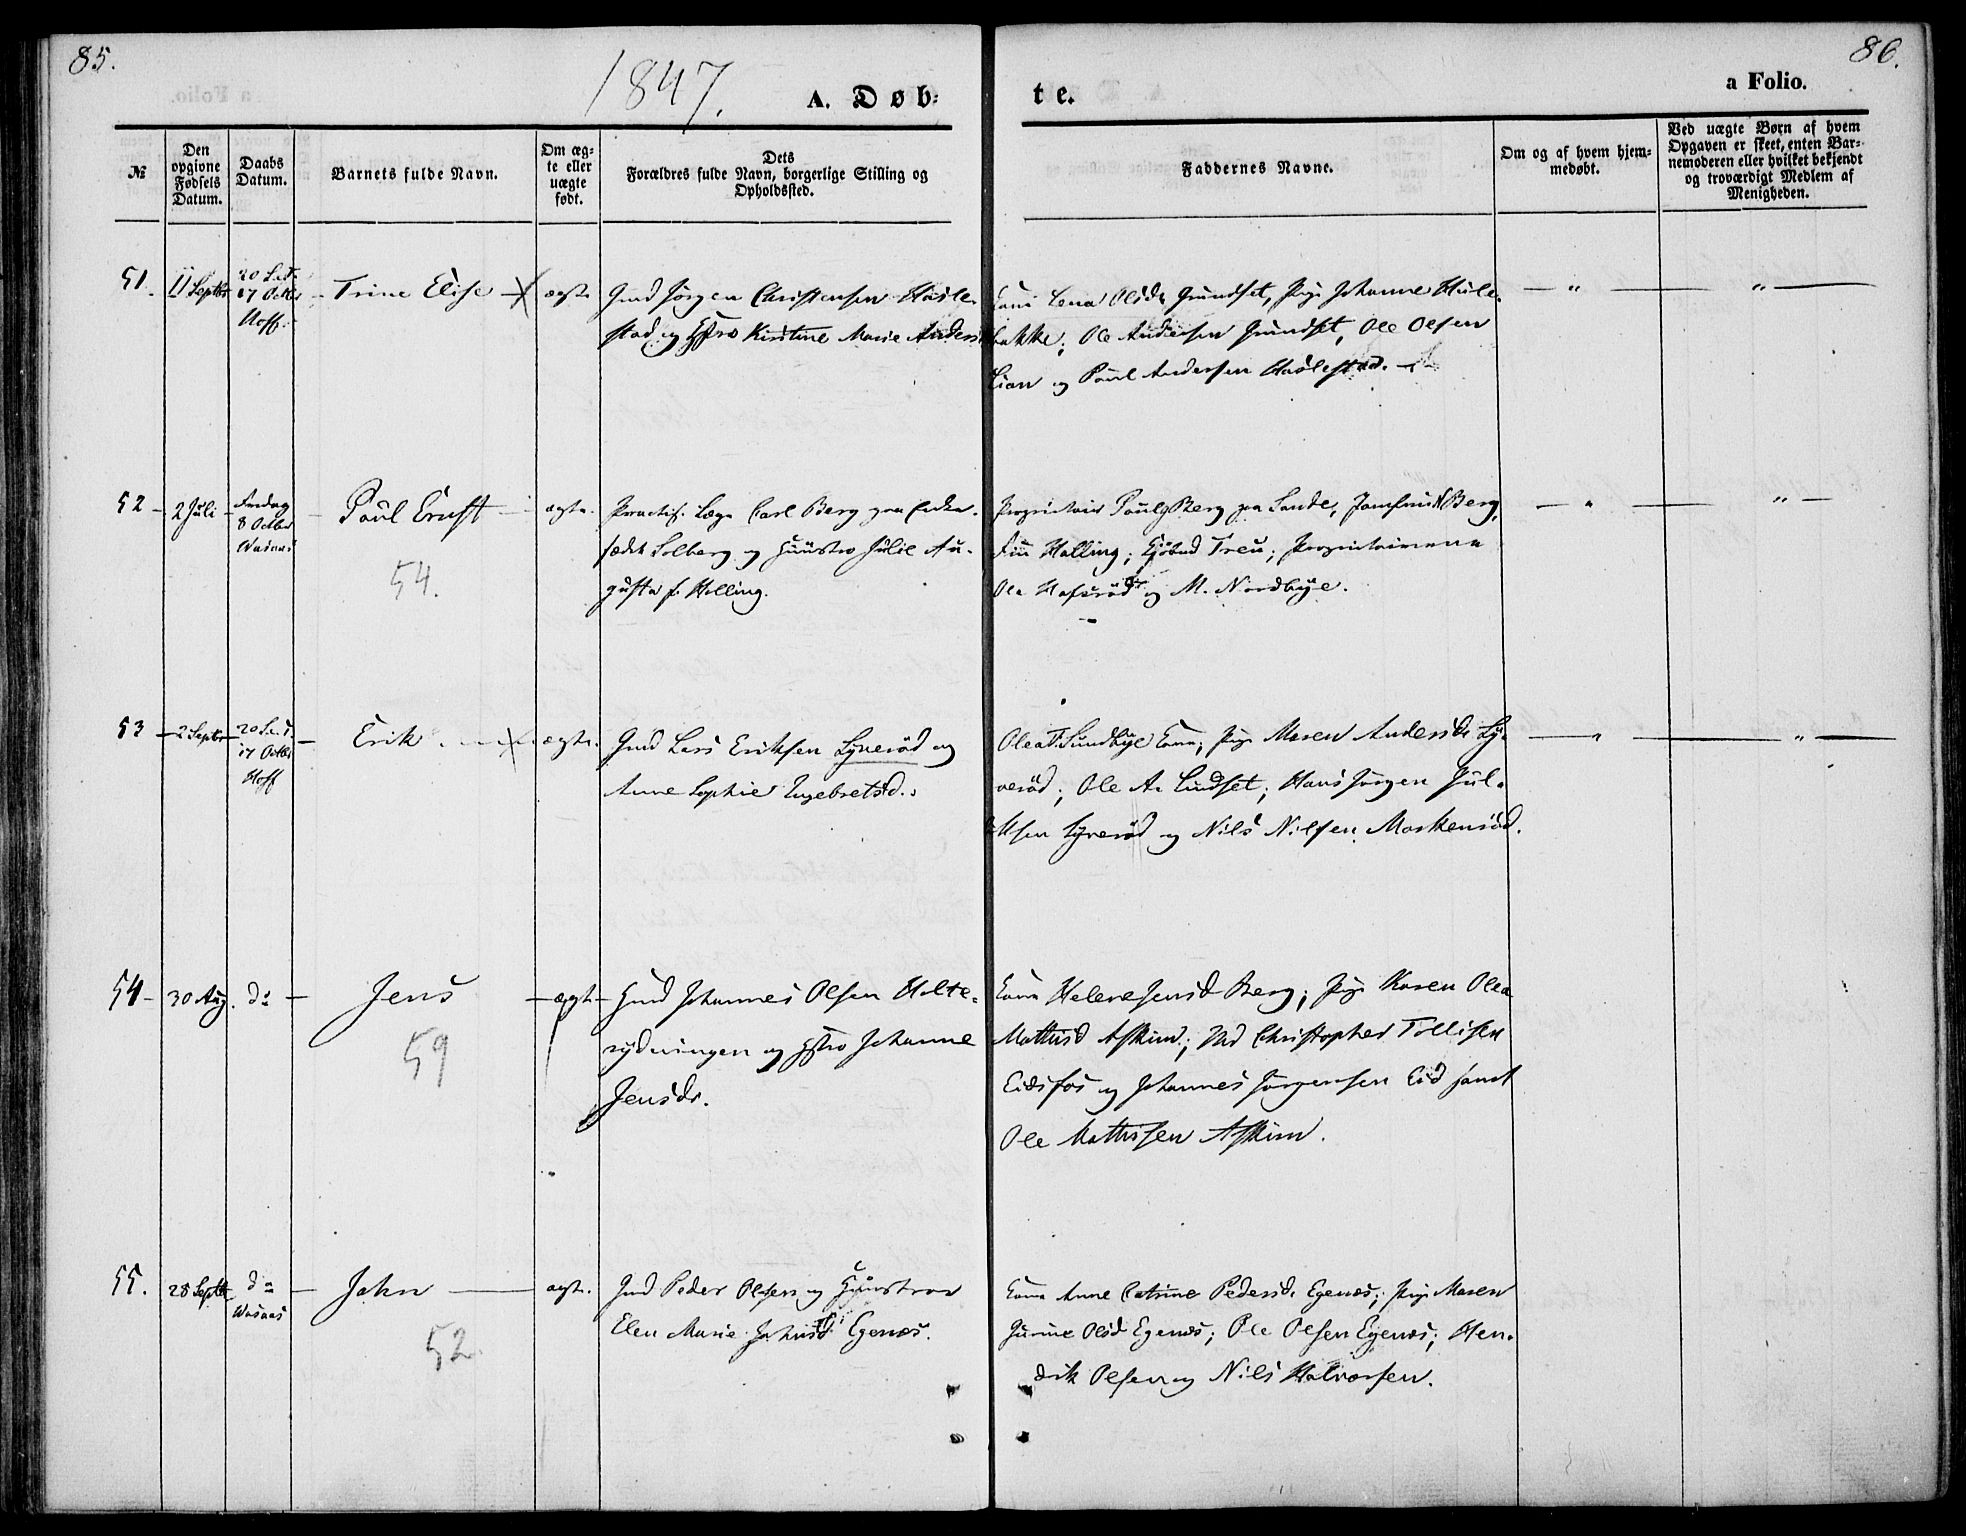 85.
1847.
A. Døb-
te.
86.
a Folio.
№
Den
opgivne
Fødsels
Datum.
Daabs
Datum.
Barnets fulde Navn.
Om æg-
te eller
uægte
født.
Dets
Forældres fulde Navn, borgerlige Stilling og
Opholdssted.
Faddernes Navne.
Om og af hvem hjem-
medøbt.
Ved uægte Børn af hvem
Opgaven er skeet, enten Bar-
nemoderen eller hvilket bekjendt
og troværdigt Medlem af
Menigheden.
51.
11 Septbr
20 S. e. T.
17 Octbr
Hoff.
Trine Elise
ægte
Gmd Jörgen Christensen Hasle-
stad og Hstro Kirstine Marie Anders
Kone Lena Olsdr Grundset, Pige Johanne Hule-
bakke; Ole Andersen Grundset, Ole Olsen
Lian og Poul Andersen Haslestad.
52
2 Juli
Fredag
8 Octbr
Wasaas
Poul Ernst
54.
ægte.
Practis. Læge Carl Berg paa Enke-
sædet Solberg og Hustro Julie Au-
gusta f. Holling.
Proprietair Poul Berg paa Sande, Jomfru Berg,
Fru Holling; Kjöbmd Treu; Proprietairerne
Ole Hafsröd og M. Nordbye.
53
2 Septbr
20 S. e. T.
17 Octbr
Hoff
Erik
ægte.
Gmd Lars Eriksen Lyneröd og
Anne Sophie Engebretsd.
Olea T. Sundbye Kone; Pige Maren Andersdr Ly-
neröd; Ole A. Lindset; Hans Jörgen Gul-
liksen Lyneröd og Nils Nilsen Maskeröd.
54
30 Aug.
do
Jens
59
ægte
Gmd Johannes Olsen Holte-
rydningen og Hstro Johanne
Jensdr.
Kone Helene Jensd Berg; Pige Karen Olea
Mathisd Askim; Christopher Tollisen
Eidsfos og Johannes Jörgensen Eid samt
Ole Mathisen Askim.
55.
28 Septbr
do
Wasaas
John
52
ægte.
Gmd Peder Olsen og Hustroe
Elen Marie Johnsd Egenæs.
Kone Anne Catrine Pedersd. Egenæs; Pige Maren
Gurine Olsd Egenæs; Ole Olsen Egenæs; Hen-
drik Olsen og Nils Halvorsen.